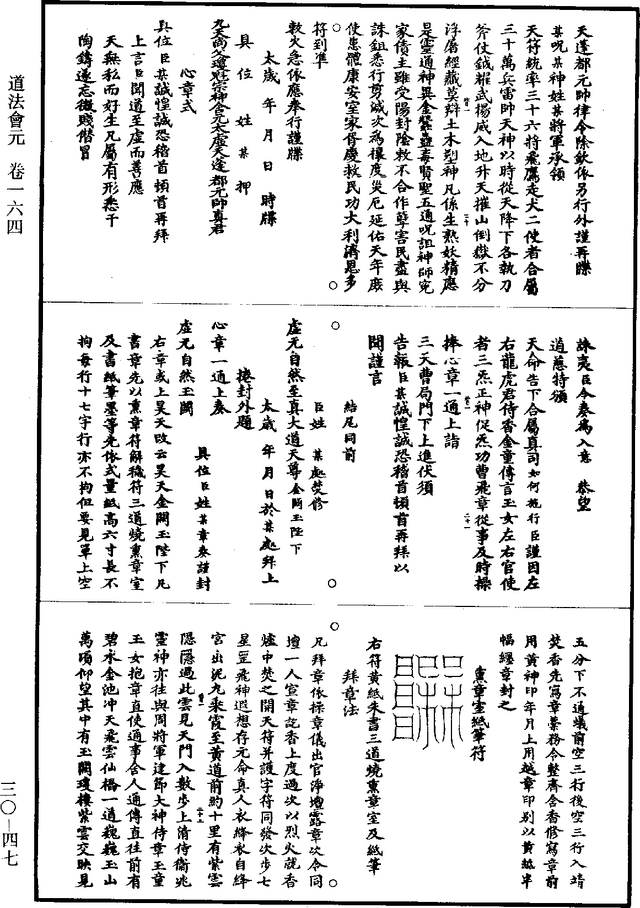 道法會元　卷一六四
三○—四七
天蓬都元帥律令除欽依另行外謹再牒
某呪某神姓某將軍承領
天符統率三十六將飛鷹走犬二使者合屬
三十萬兵雷帥天神以時從天降下各執刀
斧仗鉞耀武揚威入地升天摧山倒獄不分
浮屠經藏莫辯土木塑神凡係生熟妖精應
是靈通神異金蠶蠱毒賢聖五通呪詛神師冤
家債主雖受陽封陰敕不合作孽害民盡與
誅鉏悉行剪滅次為禳度災厄延佑天年庶
使患體康安室家胥慶救民功大利濟恩多
將到準
敕火急依應奉行謹牒
太歲　年　月　日　時牒
具　位　姓　某　押
九天尚父
心章式
具位臣某誠惶誠恐稽首頓首再拜
上言臣聞道至虛而善應
天無私而好生凡屬有形悉干
陶鑄遂忘微賤僭冒
誅夷臣今奏為入意　恭望
道慈特頒
天命告下合屬真司如何施行臣謹因左
右龍虎君侍香金童傳言玉女左右官使
者三炁正神促炁功曹飛章從事及時操
捧心章一通上詣
三天曹局門下上進伏須
告報臣某誠惶誠恐稽首頓首再拜以
聞謹言
結尾同前
臣姓　某處焚修
虛无自然至真大道天尊金闕玉陛下
太歲　年　月　日於某處拜上
捲封外題
心章一通上奏
具位臣姓某章奏謹封
虛无自然玉闕
右章或上昊天改云昊天金闕玉陛下凡
書章先以熏章符解穢符三道燒熏章室
及書紙筆墨等先依式量紙高六寸長不
拘每行十七字行亦不拘但要見單上空
五分下不通蟻前空三行後空三行入靖
焚香先寫章業務令整齊含香修寫章前
用黃神印年月上用越章印別以黃紙半
幅纏章封之
熏章室紙筆符
右符黃紙朱書三道燒熏章室及紙筆
拜章法
凡拜章依操章儀出官淨壇露章次令同
壇一人宣章訖香上度過次以烈火就香
爐中焚之開天符并護字符同發次步七
星罡飛神遐想存元命真人衣絳衣自絳
宮出泥九采霞至黃道前約十里有紫雲
隱隱過此雲見天門入數步上清侍衛兆
靈神亦往與周將軍建節大神侍章玉童
玉女抱章直使通事舍人通傳直往前有
碧水金池沖天飛雲仙橋一道巍巍玉山
萬頃仰望其中有玉闕瓊樓紫雲交映見